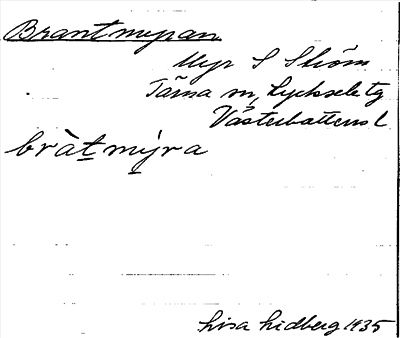 Brantmyran
Myr S Ström
Tärna sn, Lycksele tg
Västerbottens l
bràt̲ mỵ́ra
Lisa Lidberg 1935